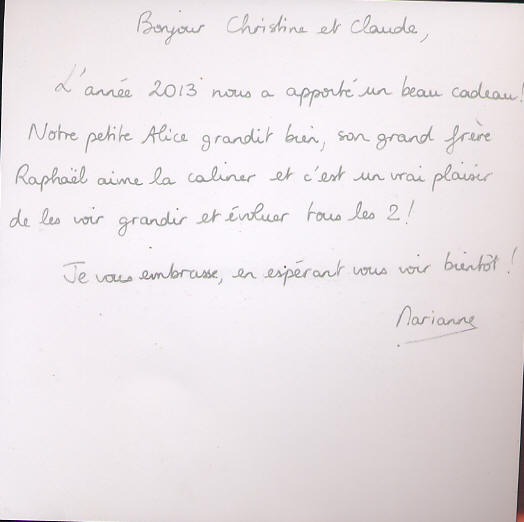 Bonjour Christine et Claude,
L'année 2013 nous a apporté un beau cadeau!
Notre petite Alice grandit bien, son grand frère
Raphaël aime la caliner et c'est un vrai plaisir
de les voir grandir et évoluer tous les 2!
Je vous embrasse, en espérant vous voir bientôt!
Marianne